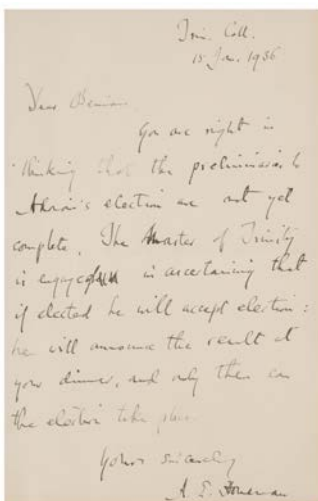 Trin. Coll.
15 Jan. 1936
Dear Benians
You are right in
thinking that the preliminaries to
Adrian's election are not yet
complete. The Master of Trinity
is engaged in ascertaining that
if elected he will accept election:
he will announce the result at
your dinner, and only then can
the election take place.
Yours sincerely
A. E. Housman